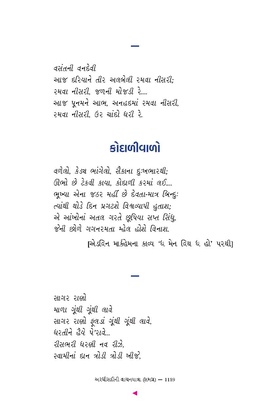 વસંતની વનદેવી
આજ દરિયાને તીર અલબેલી રમવા નીસરી;
રમવા નીસરી, જળની મોજડી રે...
આજ પૂનમને આભ, અનહદમાં રમવા નીસરી,
રમવા નીસરી, ઉર ચાંદો ધરી રે.
કોદાળીવાળો
વળેલો, કેડથ ભાંગેલો, સૈકાના દુઃખભારથી;
ઊભો છે ટેકવી કાયા, કોદાળી કરમાં લઈ...
ભૂખ્યા એના જઠર મહીં છે દેવતા-માત્ર બિન્દુઃ
ત્યાંથી થોડે દિન પ્રગટશે વિશ્વવ્યાપી હુતાશ;
એ આંખોનાં અતલ ગરતે છૂપિયા સપ્ત સિંધુ,
જેની છોળે ગગનરમતા મ્હેલ હોશે વિનાશ.
[એડવિન માર્કહેમના કાવ્ય 'ધ મેન વિથ ધ હો' પરથી]
સાગર રાણો
માળા ગૂંથી ગૂંથી લાવે
સાગર રાણો ફૂલડાં ગૂંથી ગૂંથી લાવે,
ધરતીને હૈયે પે'રાવે...
રીસભરી ધરણી નવ રીઝે,
સ્વામીનાં દાન ત્રોડી ત્રોડી ખીજે,
અરધીસદીની વાચનયાત્રા — 1119